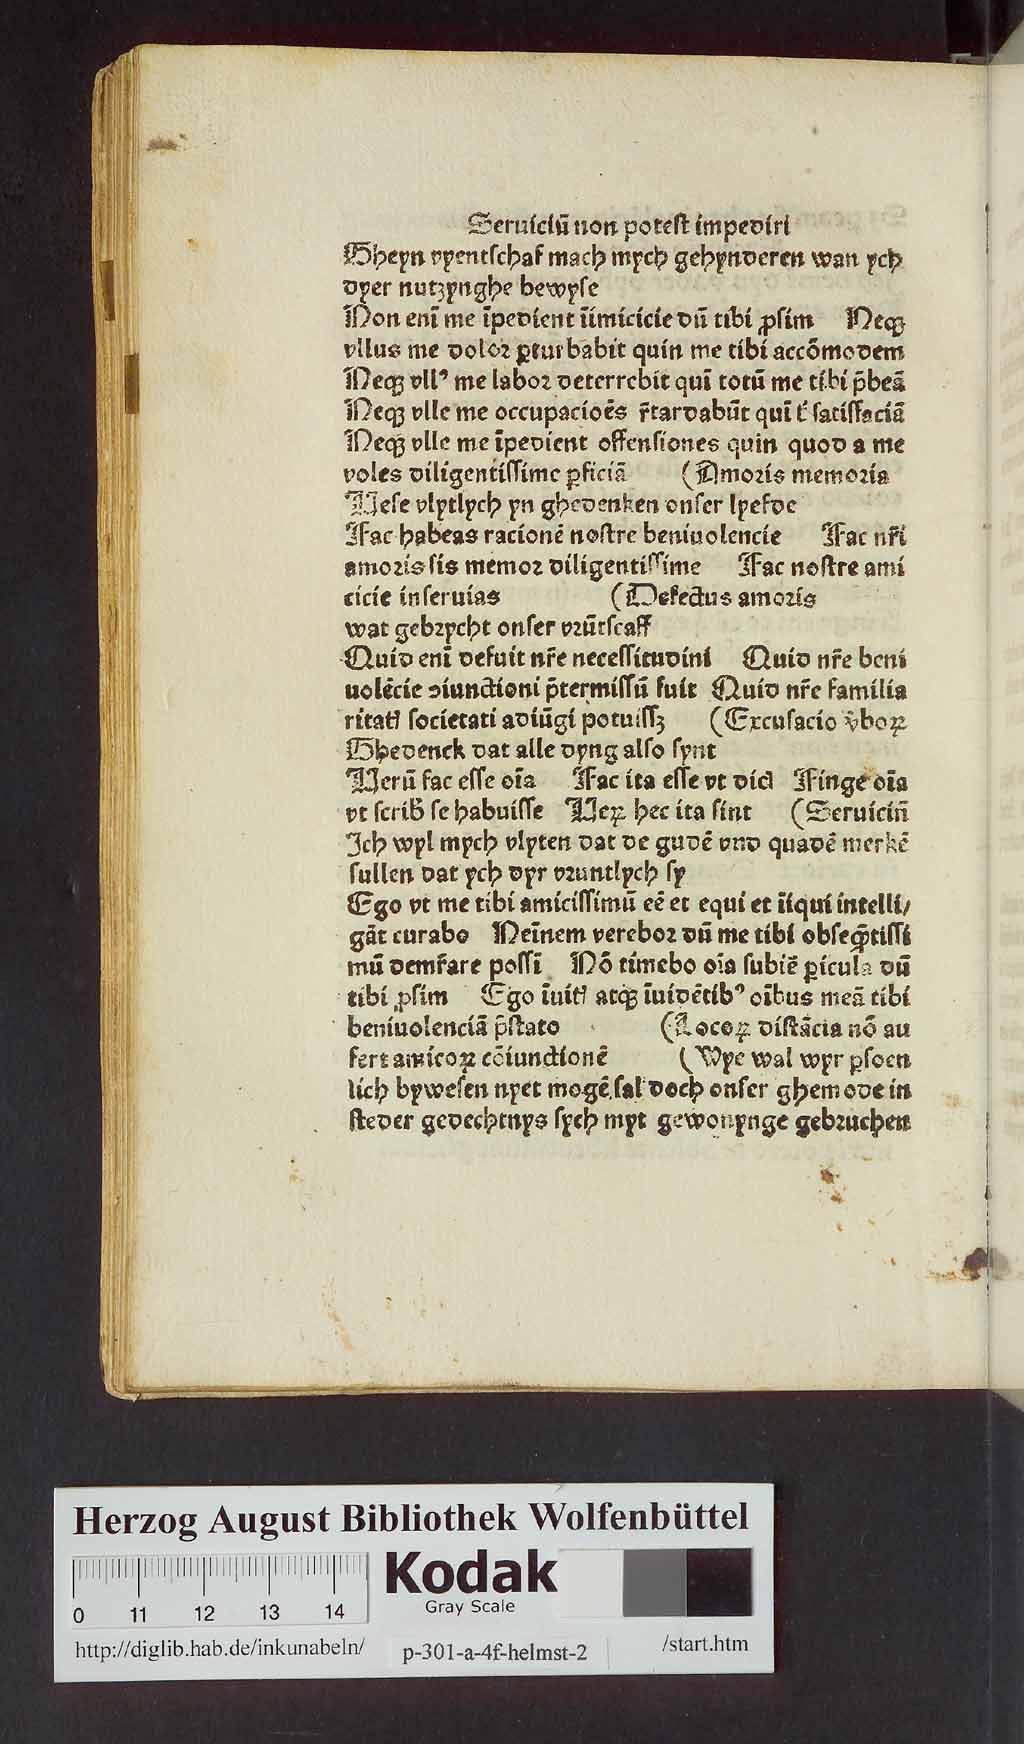 Seruiciū non potest impediri
Gheyn vyentschaf mach mych gehynderen wan ych
dyer nutzynghe bewyse
Non enī me īpedient īimicicie dū tibi ꝓsim Neqꝫ
vllus me dolor ꝑturbabit quin me tibi accōmodem
Neqꝫ vllꝰ me labor deterrebit quī totū me tibi p̄beā
Neqꝫ vlle me occupacioēs r̄tardabūt quī t̄ satisfaciā
Neqꝫ vlle me īpedient offensiones quin quod a me
voles diligentissime ꝑficiā (Amoris memoria
Uese vlytlych yn ghedenken onser lyefde
Fac habeas racionē nostre beniuolencie Fac nr̄i
amoris sis memor diligentissime Fac nostre ami
cicie inseruias (Defectus amoris
wat gebrycht onser vrūtscaff
Quid enī defuit nr̄e necessitudini Quid nr̄e beni
uolēcie ↄiunctioni p̄termissū fuit Quid nr̄e familia
ritatꝭ societati adiūgi potuissꝫ (Excusacio v̄boꝝ
Ghedenck dat alle dyng also synt
Uerū fac esse oīa Fac ita esse vt dicꝭ Finge oīa
vt scribꝭ se habuisse Ueꝝ hec ita sint (Seruiciū
Ich wyl mych vlyten dat de gudē vnd quadē merkē
sullen dat ych dyr vruntlych sy
Ego vt me tibi amicissimū eē et equi et īiqui intelli/
gāt curabo Neīnem verebor dū me tibi obseqͣ̄tissi
mū demr̄are possī Nō timebo oīa subiē ꝑicula dū
tibi ꝓsim Ego īuitꝭ atqꝫ īuidētibꝰ oībus meā tibi
beniuolenciā p̄stato (Locoꝝ distācia nō au
fert amicoꝝ cōiunctionē (Wye wal wyr ꝑsoen
lich bywesen nyet mogē sal doch onser ghemode in
steder gedechtnys sych myt gewonynge gebruchen
Herzog August Bibliothek Wolfenbüttel
0 11 12 13 14
Kodak
Gray Scale
http://diglib.hab.de/inkunabeln/ p-301-a-4f-helmst-2 /start.htm